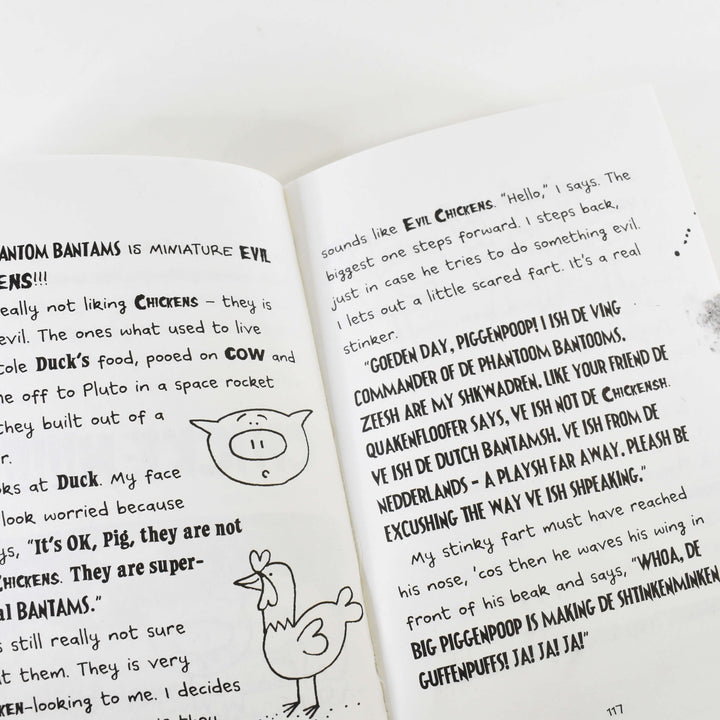 ANTOM BANTAMS IS MINIATURE EVIL
ENS!!!
eally not liking CHICKENS – they is
evil. The ones what used to live
tole Duck's food, pooed on COW and
me off to Pluto in a space rocket
they built out of a
r.
oks at Duck. My face
look worried because
ys, "It's OK, Pig, they are not
CHICKENS. They are super-
al BANTAMS."
s still really not sure
ut them. They is very
KEN-looking to me. I decides
sounds like EVIL CHICKENS. "Hello," I says. The
biggest one steps forward. I steps back,
just in case he tries to do something evil.
I lets out a little scared fart. It's a real
stinker.
"GOEDEN DAY, PIGGENPOOP! I ISH DE VING
COMMANDER OF DE PHANTOOM BANTOOMS.
ZEESH ARE MY SHKWADREN. LIKE YOUR FRIEND DE
QUAKENFLOOFER SAYS, VE ISH NOT DE CHICKENSH.
VE ISH DE DUTCH BANTAMSH. VE ISH FROM DE
NEDDERLANDS – A PLAYSH FAR AWAY. PLEASH BE
EXCUSHING THE WAY VE ISH SHPEAKING."
My stinky fart must have reached
his nose, 'cos then he waves his wing in
front of his beak and says, "WHOA, DE
BIG PIGGENPOOP IS MAKING DE SHTINKENMINKEN
GUFFENPUFFS! JA! JA! JA!"
117